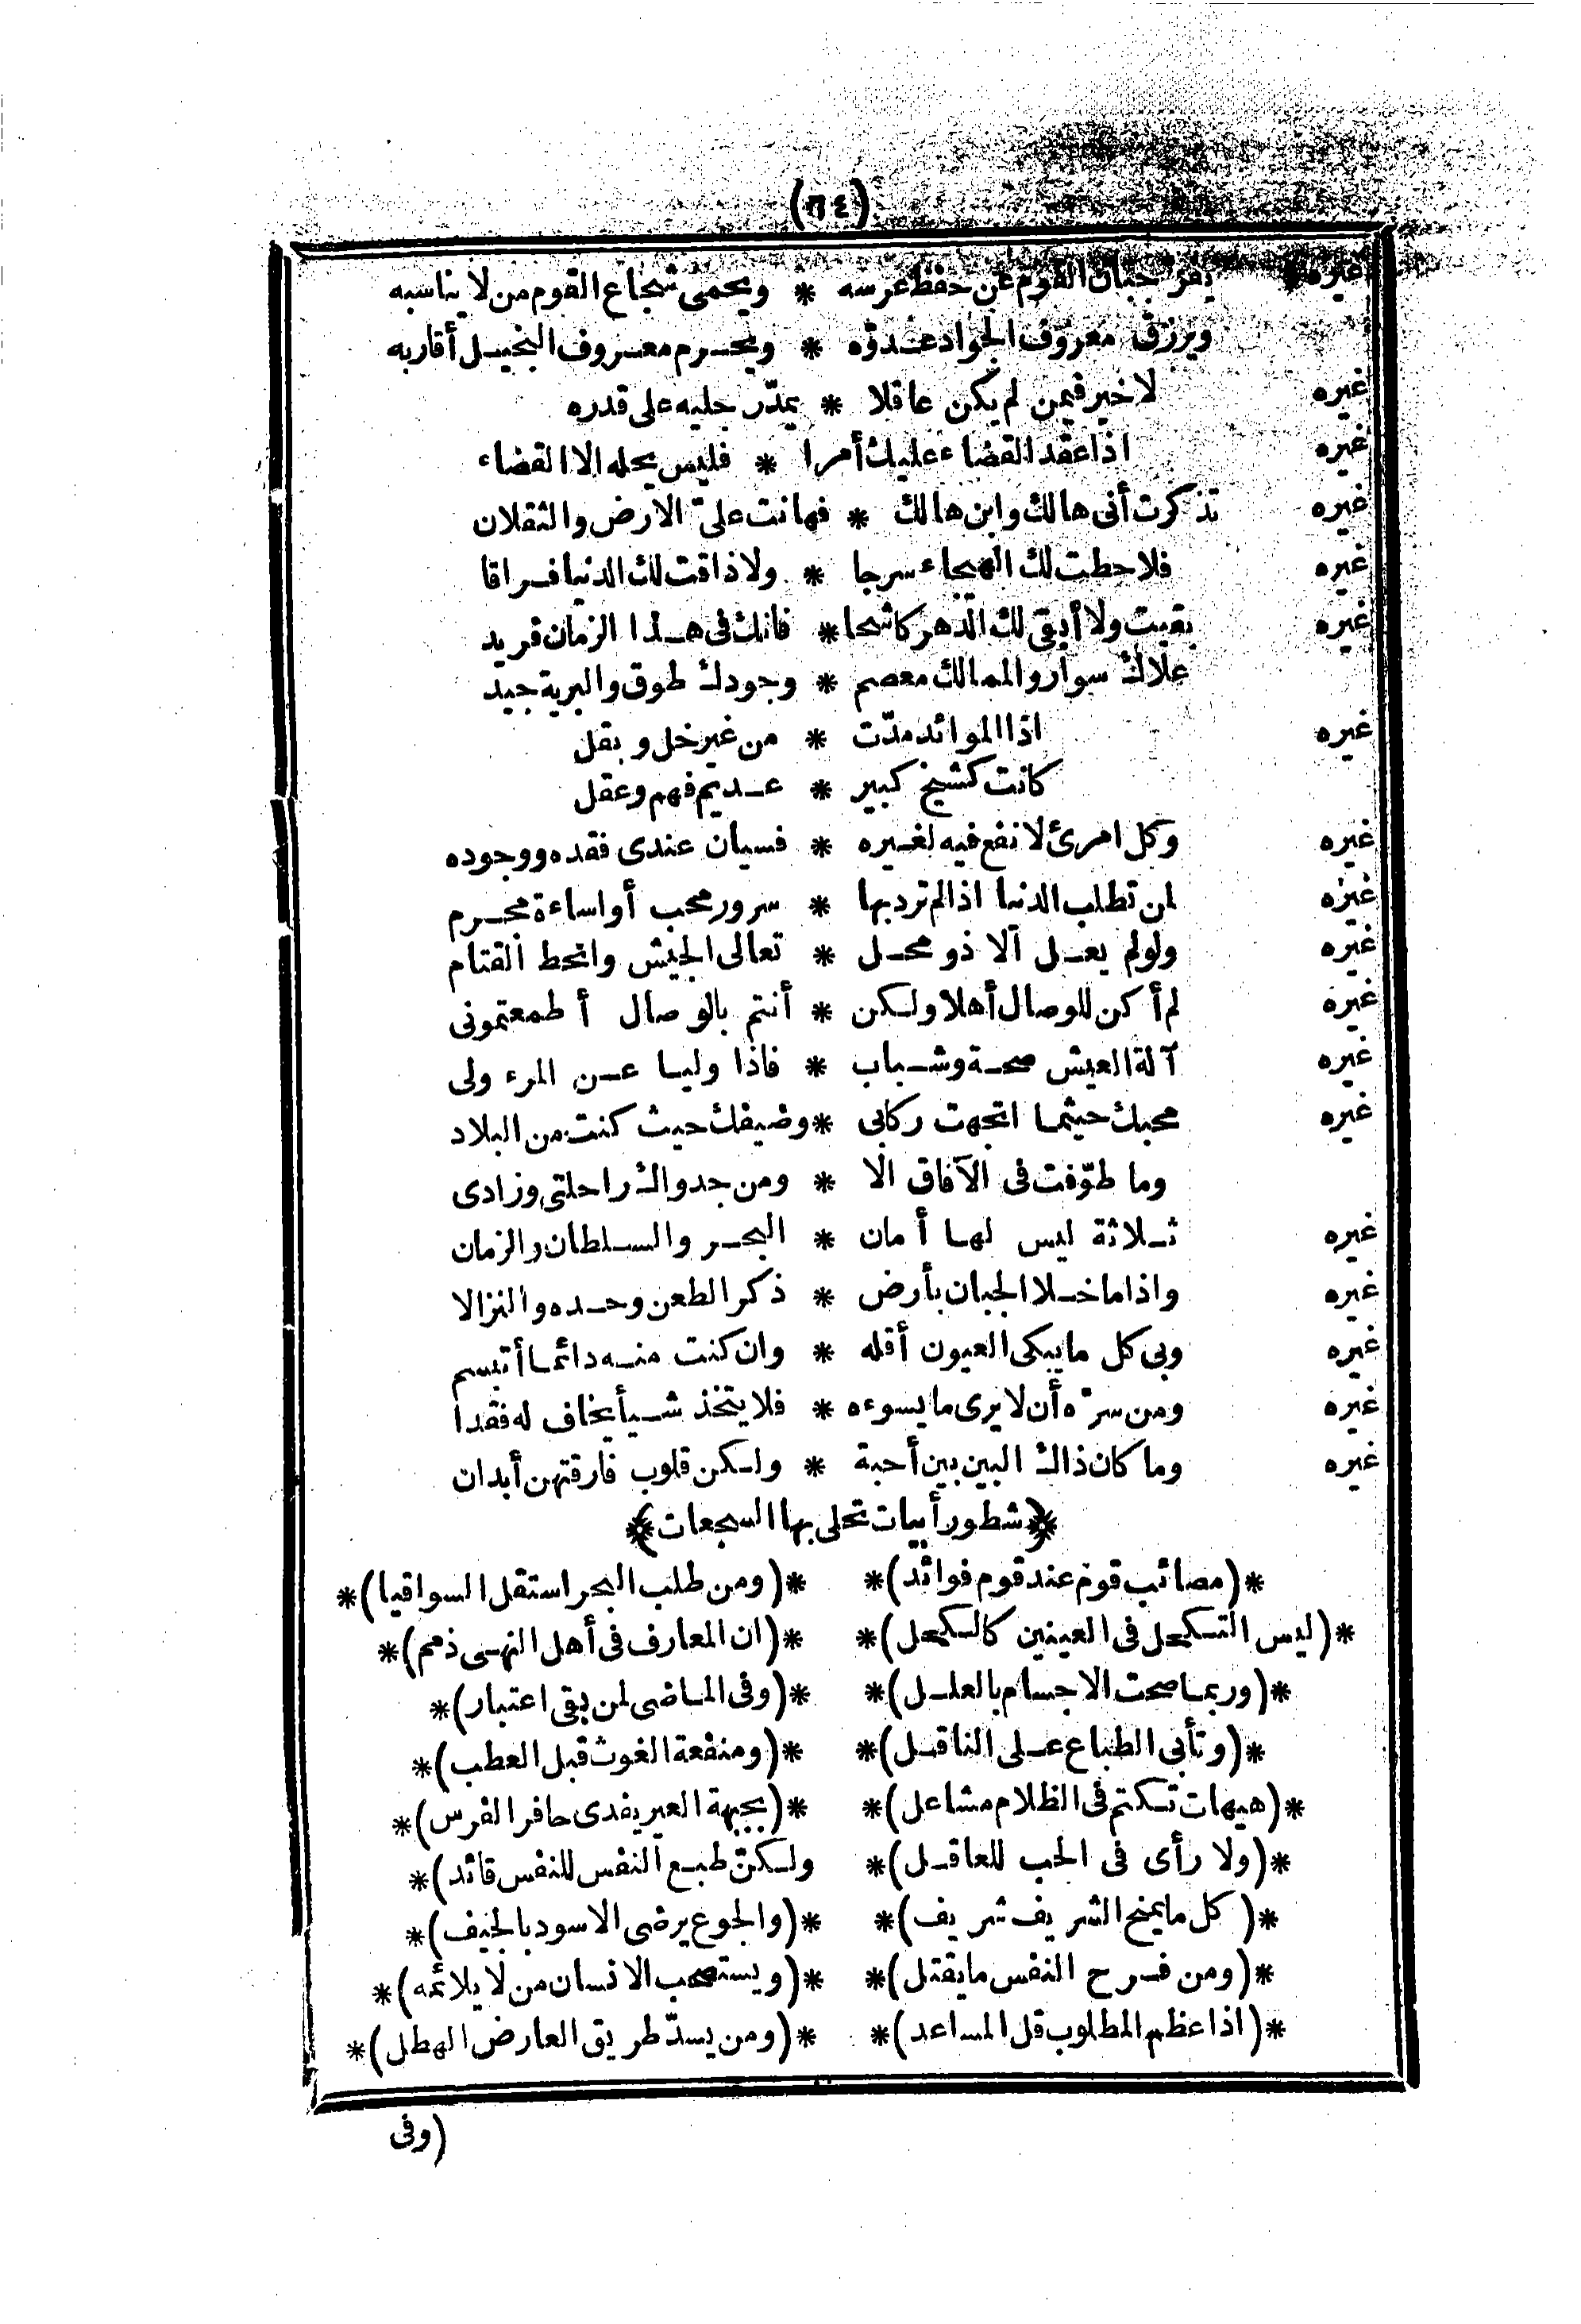 (٦٤)
غيره يفر جبان القوم عن حفظ عرسه * ويحمى شجاع القوم من لا يناسبه
ويرزق معروف الجواد عدوّه * ويحرم معروف البخيل أقاربه
غيره لا خير فيمن لم يكن عاقلا * يمدّ رجليه على قدره
غيره اذا عقد القضاء عليك أمرا * فليس يحله الا القضاء
غيره تذكرت أنى هالك وابن هالك * فهانت علىّ الارض والثقلان
غيره فلا حطت لك الهيجاء سرجا * ولا ذاقت لك الدنيا فراقا
غيره بقيت ولا أبقى لك الدهر كاشحا * فانك فى هذا الزمان فريد
علاك سوار والممالك معصم * وجودك طوق والبرية جيد
غيره اذا الموائد مدّت * من غير خل وبقل
كانت كشيخ كبير * عديم فهم وعقل
غيره وكل امرئ لا نفع فيه لغيره * فسيان عندى فقده ووجوده
غيره لمن تطلب الدنيا اذا لم ترد بها * سرور محب أو اساءة مجرم
غيره ولو لم يعل الا ذو محل * تعالى الجيش وانحط القتام
غيره لم أكن للوصال أهلا ولكن * أنتم بالوصال أطمعتمونى
غيره آلة العيش صحة وشباب * فاذا وليا عن المرء ولى
غيره محبك حيثما اتجهت ركابى * وضيفك حيث كنت من البلاد
وما طوّفت فى الآفاق الا * ومن جدواك راحلتى وزادى
غيره ثلاثة ليس لها أمان * البحر والسلطان والزمان
غيره واذا ما خلا الجبان بأرض * ذكر الطعن وحده والنزالا
غيره وبى كل ما يبكى العيون أقله * وان كنت منه دائما أتبسم
غيره ومن سرّه أن لا يرى ما يسوءه * فلا يتخذ شيأ يخاف له فقدا
غيره وما كان ذاك البين بين أحبة * ولكن قلوب فارقتهن أبدان
﴿شطور أبيات تحلى بها السجعات﴾
*(مصائب قوم عند قوم فوائد)* *(ومن طلب البحر استقل السواقيا)*
*(ليس التكحل فى العينين كالكحل)* *(ان المعارف فى أهل النهى ذمم)*
*(وربما صحت الاجسام بالعلل)* *(وفى الماضى لمن بقى اعتبار)*
*(وتأبى الطباع على الناقل)* *(ومنفعة الغوث قبل العطب)*
*(هيهات تكتم فى الظلام مشاعل)* *(بجبهة العير يفدى حافر الفرس)*
*(ولا رأى فى الحب للعاقل)* ولكنّ طبع النفس للنفس قائد)*
*(كل ما يمنح الشريف شريف)* *(والجوع يرضى الاسود بالجيف)*
*(ومن فرح النفس ما يقتل)* *(ويستصحب الانسان من لا يلائمه)*
*(اذا عظم المطلوب قل المساعد)* *(ومن يسدّ طريق العارض الهطل)*
(وفى